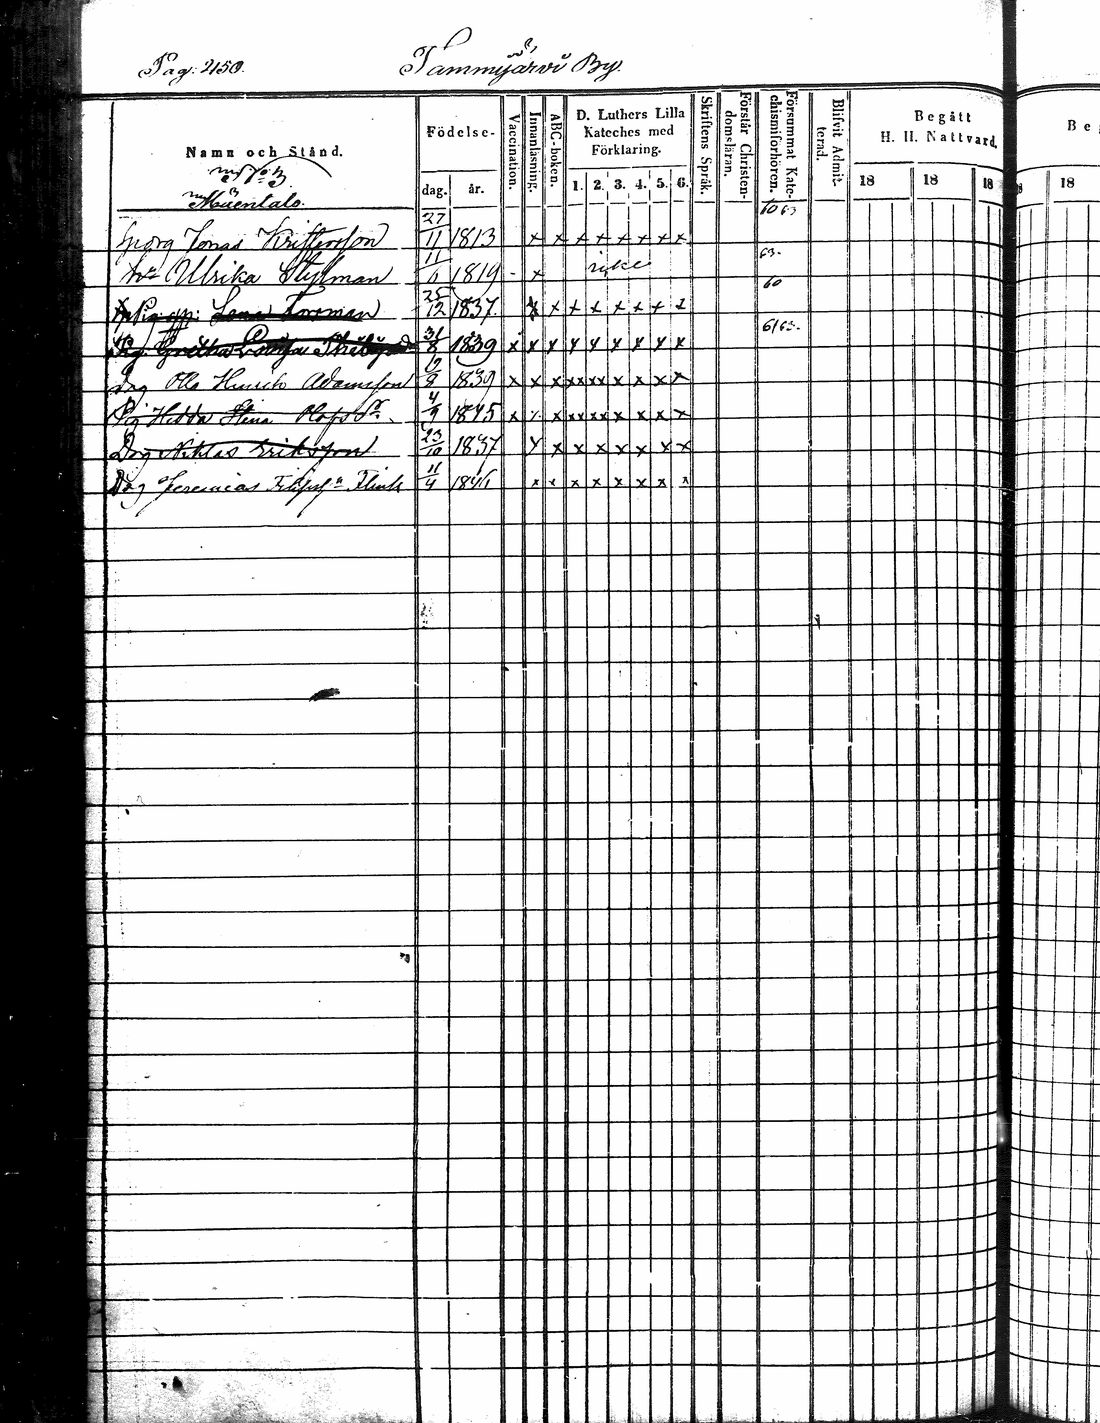 Pag: 250.
Tammijärvi By.
Namn och Stånd.
Födelse-
dag. år.
Vaccination.
Innanläsning.
ABC-boken.
D. Luthers Lilla
Kateches med
Förklaring.
1. 2. 3. 4. 5. 6.
Skriftens Språk.
Förstår Christen-
domsläran.
Försummat Kate-
chismiförhören.
Blifvit Admit-
terad.
Begått
H. H. Nattvard.
18 18 18 18
Beg
Georg Jonas Kristersson 27/11 1813 x x x x x x x x 60 63
Ulrika Stylman 11/6 1819 - x icke 63.
Pig Lena Forsman 25/12 1837. x x x x x x x x 60
Pig Gretha Lovisa 31/8 1839 x x x x x x x x x 61 63.
Drg Olli Henrik Adamsson 12/8 1839 x x x xx xx x x x x
Pig Hedda Stina Olofsdr. 4/9 1845 x x x xx xx x x x x
Drg Niklas Eriksson 23/10 1837 x x x x x x x x
Drg Jeremias Flink 11/4 1846 x x x x x x x x